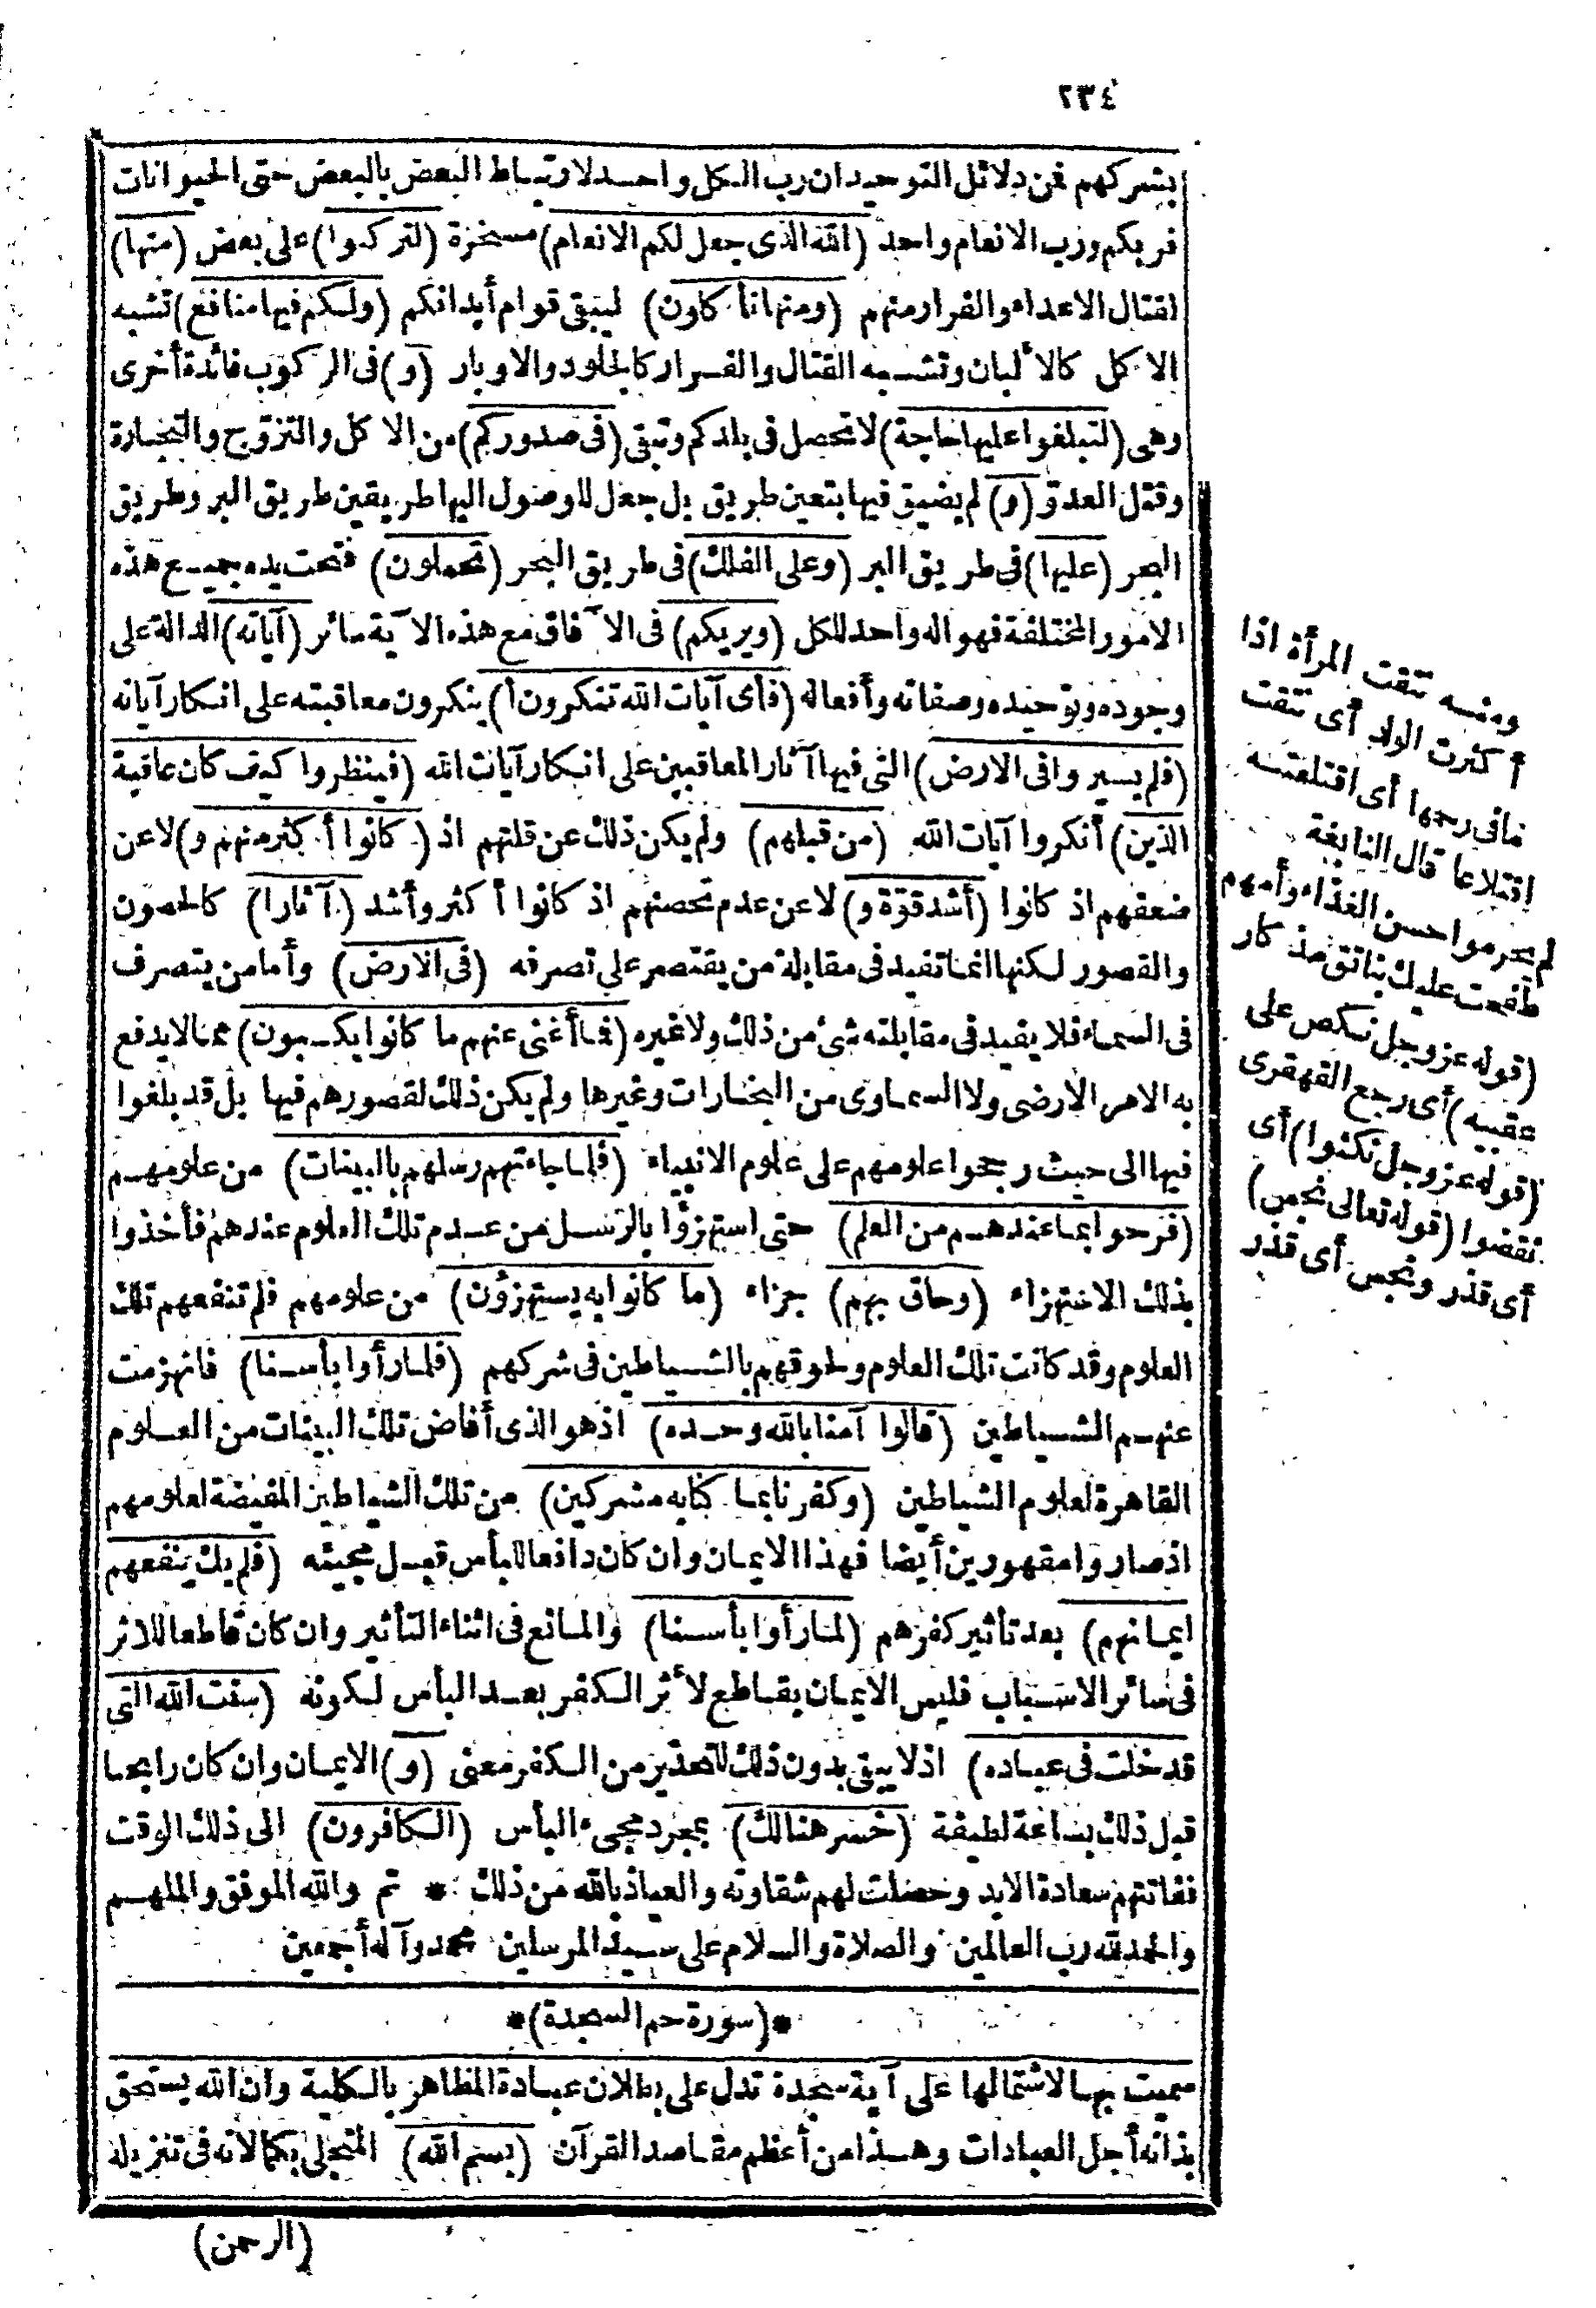 ٢٣٤
بشركهم فمن دلائل التوحيد ان رب الكل واحد لارتباط البعض بالبعض حتى الحيوانات
فربكم ورب الانعام واحد (الله الذى جعل لكم الانعام) مسخرة (لتركبوا) على بعض (منها)
لقتال الاعداء والفرار منهم (ومنها تأكلون) ليبقى قوام أبدانكم (ولكم فيها منافع) تشبه
الاكل كالألبان وتشبه القتال والفرار كالجلود والاوبار (و) فى الركوب فائدة أخرى
وهى (لتبلغوا عليها حاجة) لا تحصل فى بلدكم وتبقى (فى صدوركم) من الاكل والتزوج والتجارة
وقتل العدو (و) لم يضيق فيها بتعين طريق بل جعل للوصول اليها طريقين طريق البر وطريق
البحر (عليها) فى طريق البر (وعلى الفلك) فى طريق البحر (تحملون) فتحت يده جميع هذه
الامور المختلفة فهو اله واحد للكل (ويريكم) فى الآفاق مع هذه الآية سائر (آياته) الدالة على
وجوده وتوحيده وصفاته وأفعاله (فأى آيات الله تنكرون أ) ينكرون معاقبته على انكار آياته
(فلم يسيروا فى الارض) التى فيها آثار المعاقبين على انكار آيات الله (فينظروا كيف كان عاقبة
الذين) أنكروا آيات الله (من قبلهم) ولم يكن ذلك عن قلتهم اذ (كانوا أكثر منهم و) لا عن
ضعفهم اذ كانوا (أشد قوة و) لا عن عدم تحصنهم اذ كانوا أكثر وأشد (آثارا) كالحصون
والقصور لكنها انما تفيد فى مقابلة من يقتصر على تصرفه (فى الارض) وأما من يتصرف
فى السماء فلا يفيد فى مقابلته شئ من ذلك ولا غيره (فما أغنى عنهم ما كانوا يكسبون) مما لا يدفع
به الامر الارضى ولا السماوى من البخارات وغيرها ولم يكن ذلك لقصورهم فيها بل قد بلغوا
فيها الى حيث رجحوا علومهم على علوم الانبياء (فلما جاءتهم رسلهم بالبينات) من علومهم
(فرحوا بما عندهم من العلم) حتى استهزؤا بالرسل من عدم تلك العلوم عندهم فأخذوا
بذلك الاستهزاء (وحاق بهم) جزاء (ما كانوا به يستهزؤن) من علومهم فلم تنفعهم تلك
العلوم وقد كانت تلك العلوم ولحوقهم بالشياطين فى شركهم (فلما رأوا بأسنا) فانهزمت
عنهم الشياطين (قالوا آمنا بالله وحده) اذ هو الذى أفاض تلك البينات من العلوم
القاهرة لعلوم الشياطين (وكفرنا بما كنا به مشركين) من تلك الشياطين المفيضة لعلومهم
اذ صاروا مقهورين أيضا فهذا الايمان وان كان دافعا للبأس قبل مجيئه (فلم يك ينفعهم
ايمانهم) بعد تأثير كفرهم (لما رأوا بأسنا) والمانع فى اثناء التأثير وان كان قاطعا للاثر
فى سائر الاسباب فليس الايمان بقاطع لأثر الكفر بعد البأس لكونه (سنت الله التى
قد خلت فى عباده) اذ لا يبقى بدون ذلك للتحذير من الكفر معنى (و) الايمان وان كان رابحا
قبل ذلك بساعة لطيفة (خسر هنالك) بمجرد مجىء البأس (الكافرون) الى ذلك الوقت
ففاتتهم سعادة الابد وحصلت لهم شقاوته والعياذ بالله من ذلك * تم والله الموفق والملهم
والحمد لله رب العالمين والصلاة والسلام على سيد المرسلين محمد وآله أجمعين
*(سورة حم السجدة)*
سميت بها لاشتمالها على آية سجدة تدل على بطلان عبادة المظاهر بالكلية وان الله يستحق
بذاته أجل العبادات وهذا من أعظم مقاصد القرآن (بسم الله) المتجلى بكمالاته فى تنزيله
(الرحمن)
ومنه نتقت المرأة اذا
أكثرت الولد أى نتقت
ما فى رحمها أى اقتلعته
اقتلاعا قال النابغة
لم يحرموا حسن الغذاء وأمهم
طفحت عليك بناتق مذكار
(قوله عز وجل نكص على
عقبيه) أى رجع القهقرى
(قوله عز وجل نكثوا) أى
نقضوا (قوله تعالى نجس)
أى قذر ونجس أى قذر